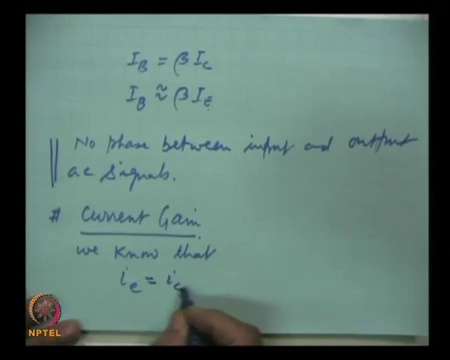 I_B = β I_C
I_B ≈ β I_E
No phase between input and output
ac signals.
# Current Gain
we know that
i_e = i_c
NPTEL